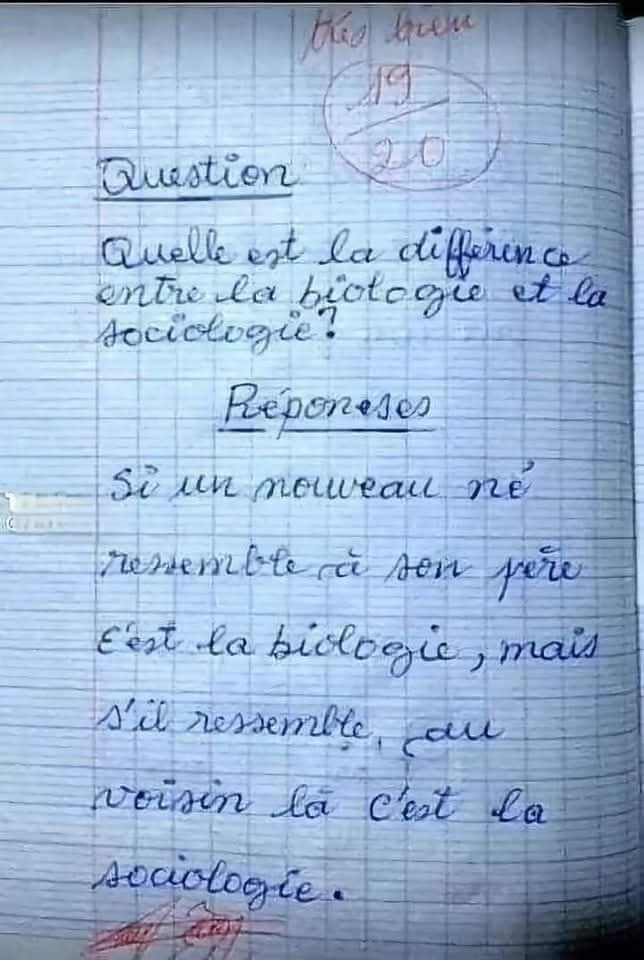 très bien
19
20
Question
Quelle est la différence
entre la biologie et la
sociologie?
Réponeses
Si un nouveau né
ressemble à son père
c'est la biologie, mais
s'il ressemble, au
voisin là c'est la
sociologie.